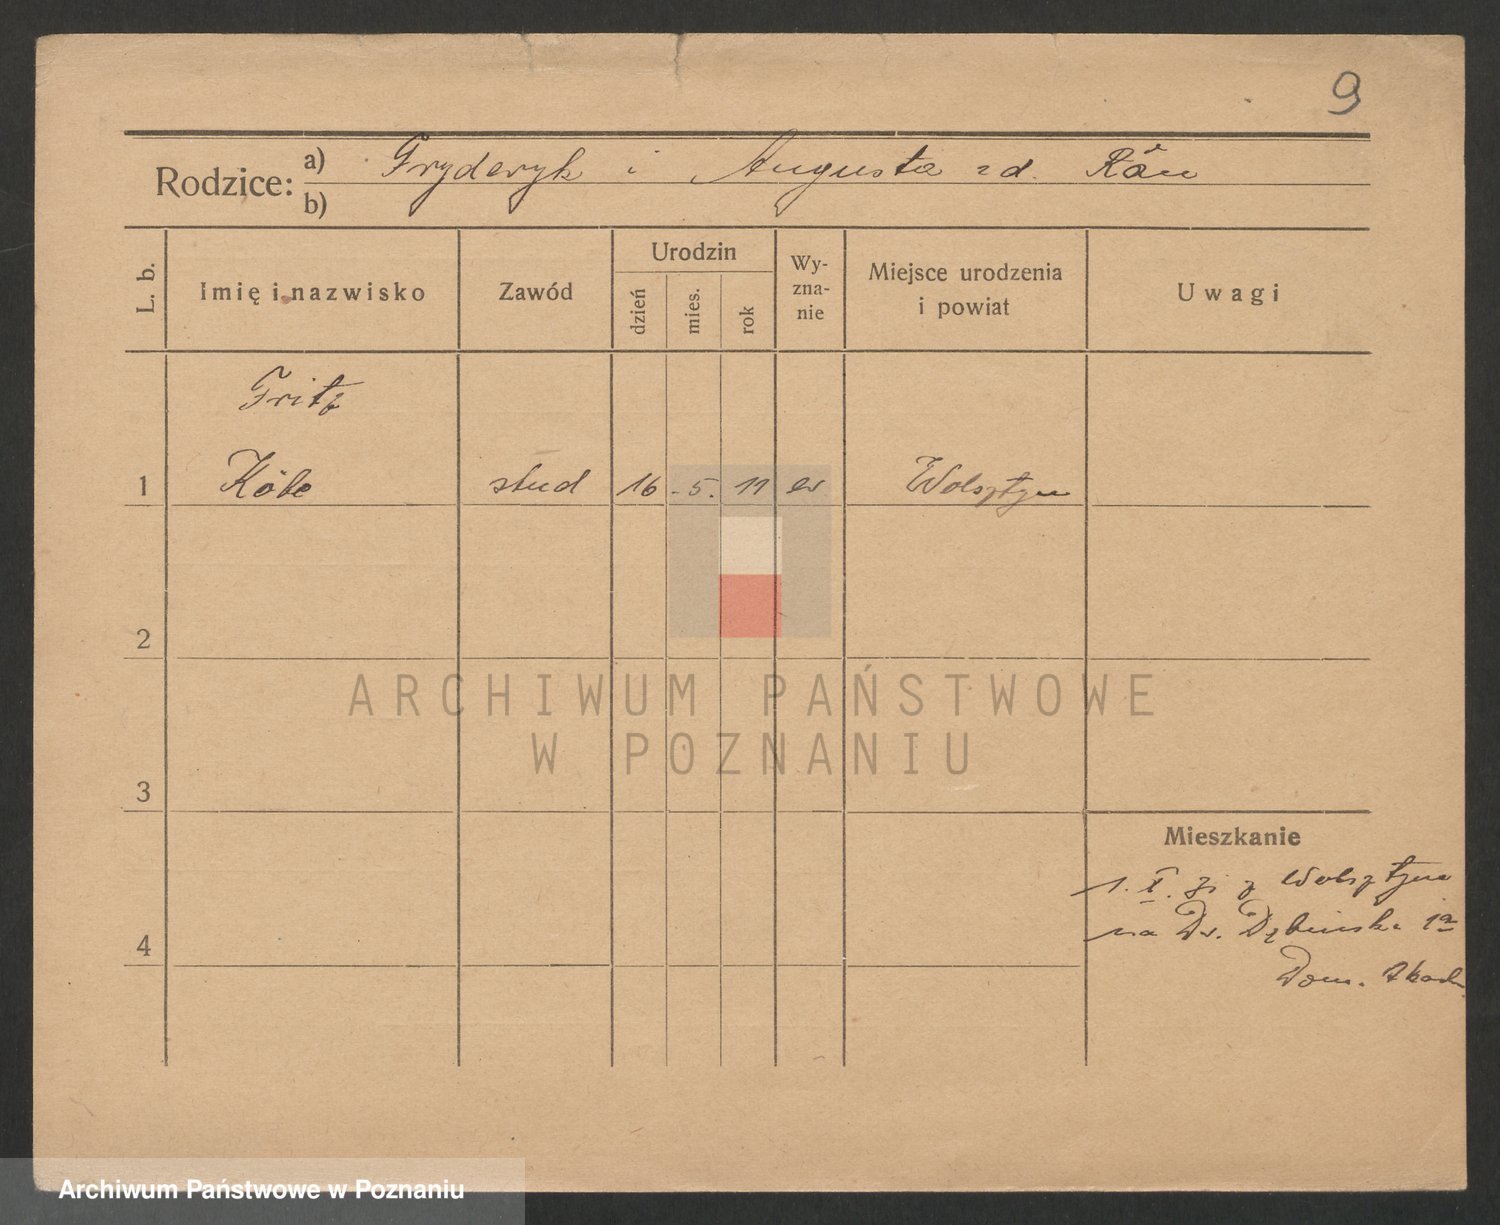 9
Rodzice: a) Fryderyk i Augusta zd. Rău
b)
L. b.
Imię i nazwisko
Zawód
Urodzin
dzień
mies.
rok
Wy-
zna-
nie
Miejsce urodzenia
i powiat
Uwagi
Fritz
1 Köbe stud 16 - 5. 11 ew Wolsztyn
2
3
4
Mieszkanie
1. X. z Wolsztyna
na Dr. Dębińska 1a
Dom. Akad.
ARCHIWUM PAŃSTWOWE
W POZNANIU
Archiwum Państwowe w Poznaniu